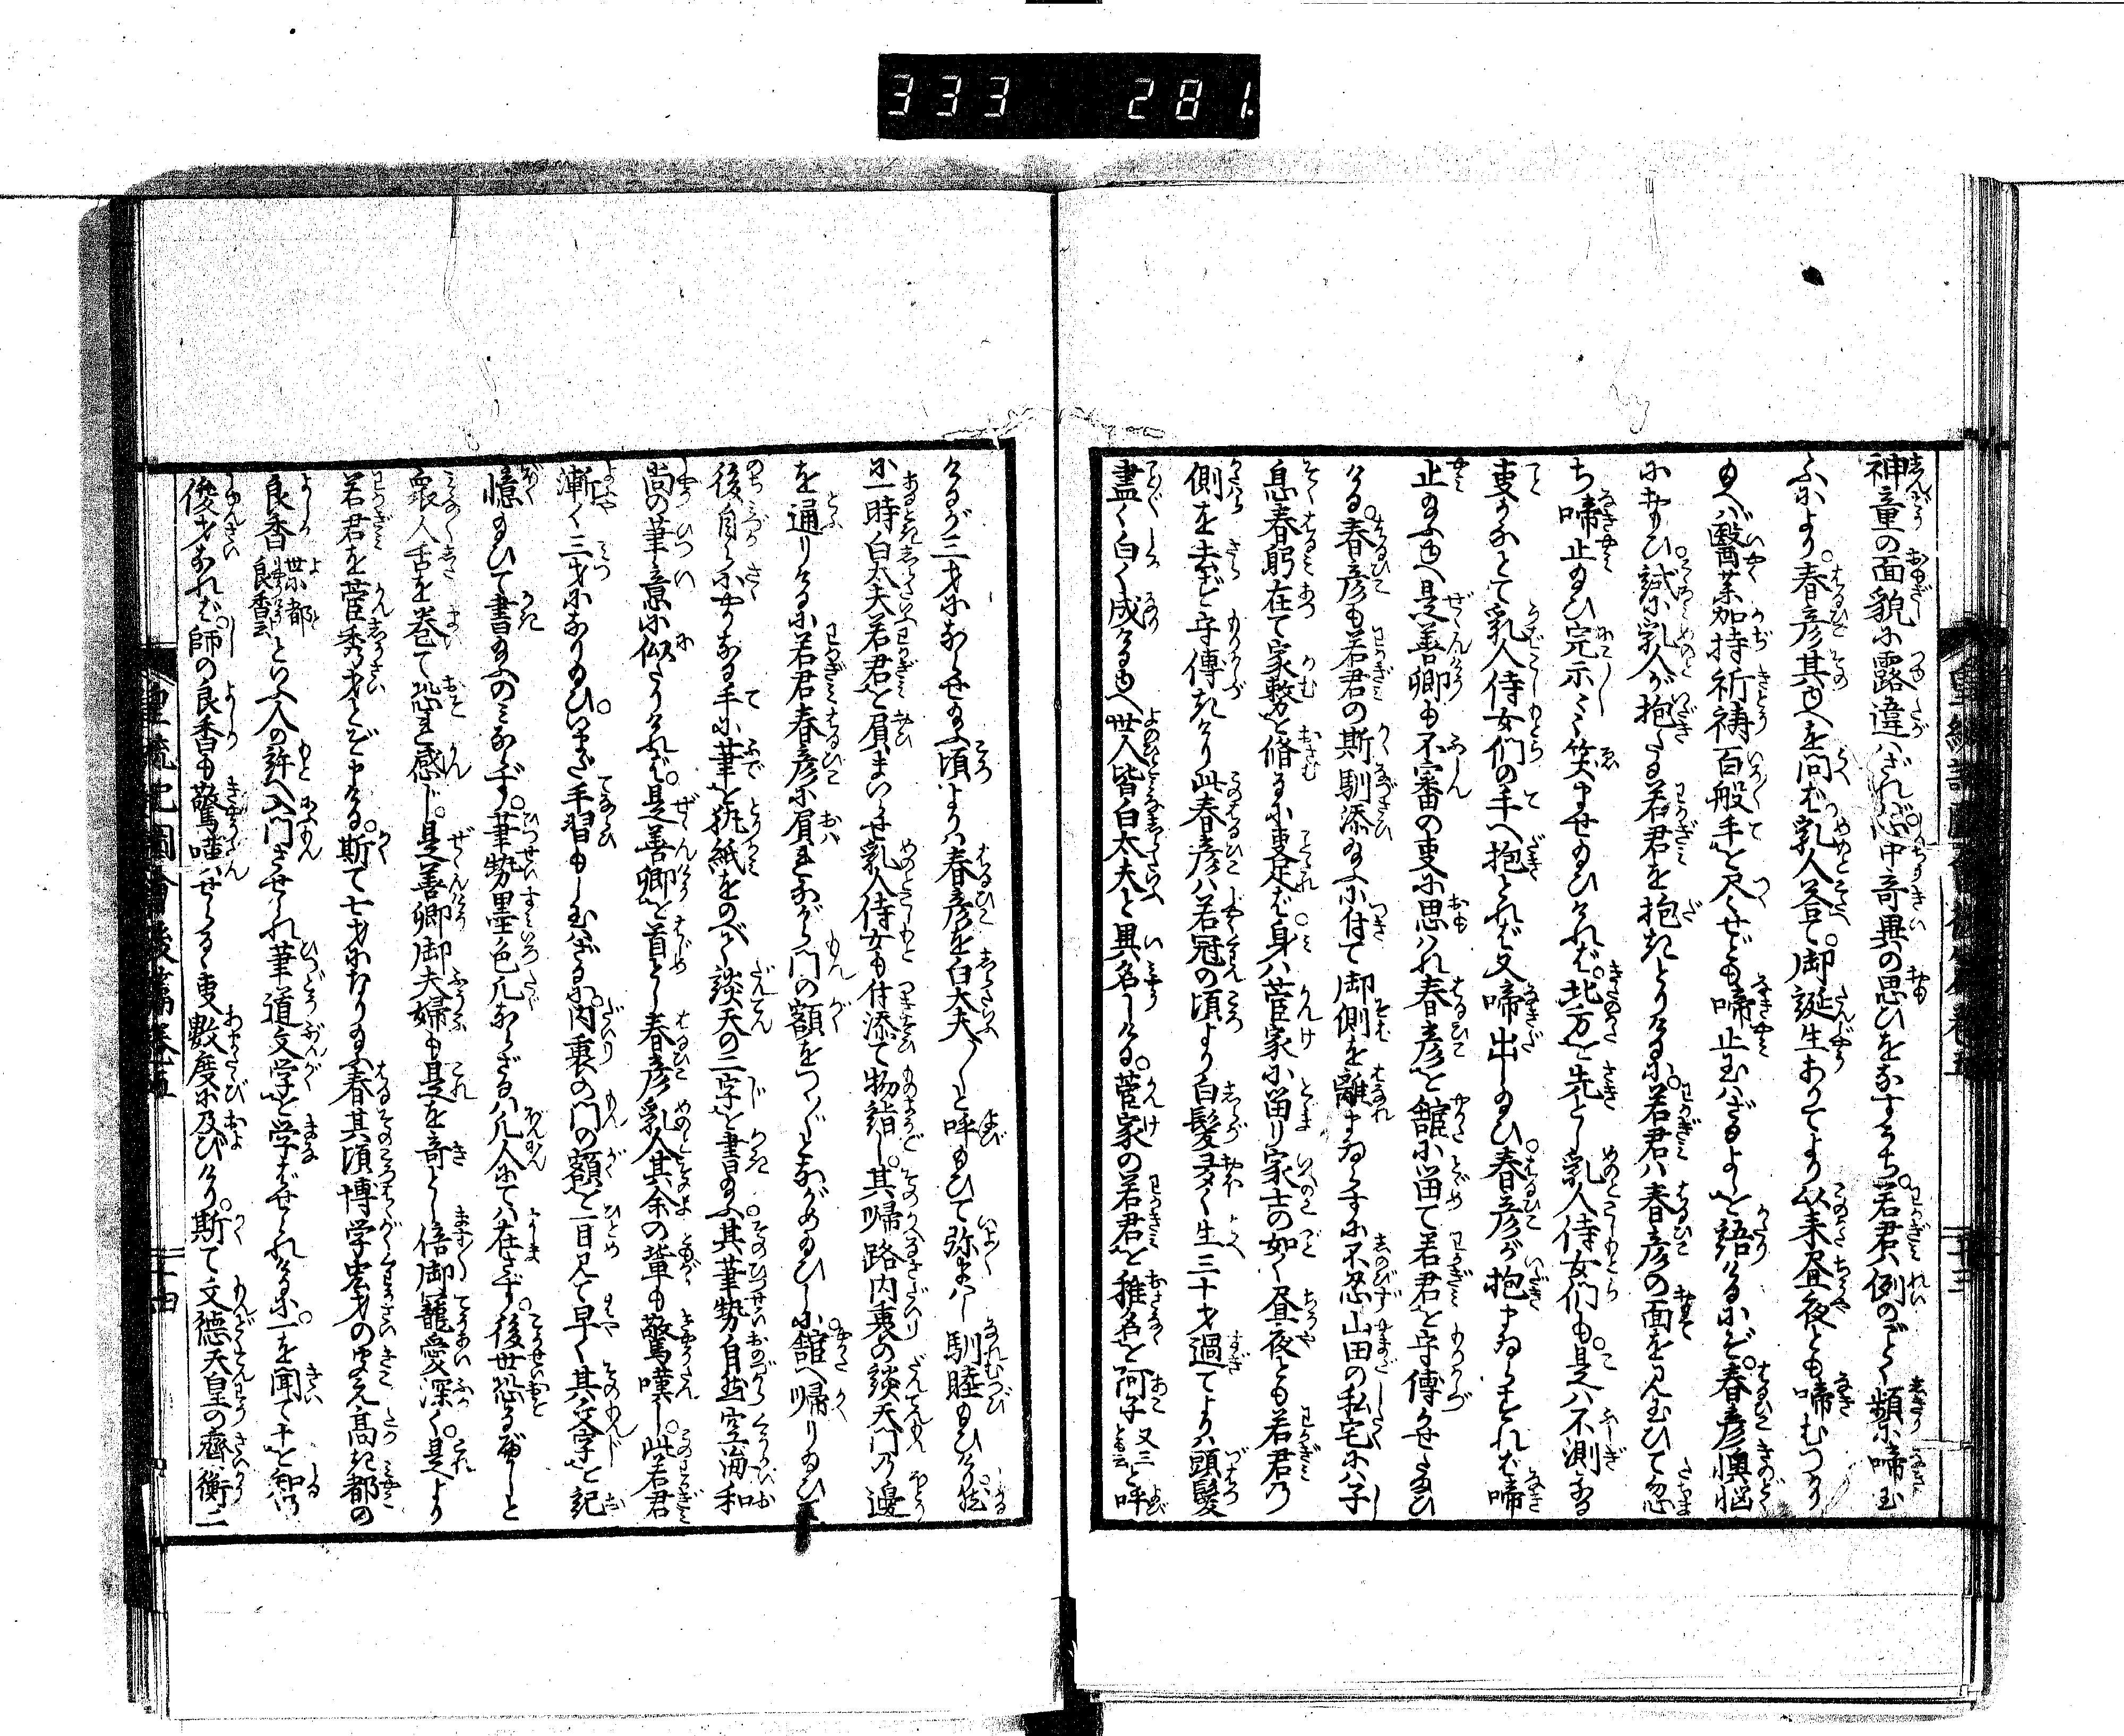 333 281.
神童の面貌に露違はざれば。心中奇異の思ひをなすうち。若君は例のごとく頻に啼玉
ふにより。春彦其ゆへを問ば乳人答て。御誕生ありてより以来昼夜とも啼むつかり
給へば醫薬加持祈祷百般手を尽せども啼止玉はざるよしを語けるにぞ。春彦懊悩
におもひ。試に乳人が抱たる若君を抱きとりけるに。若君は春彦の面を見玉ひて忽
ち啼止給ひ完示々々笑ませ給ひければ。北方を先とし乳人侍女們も。是は不測なる
事かなとて乳人侍女們の手へ抱とれば又啼出し給ひ。春彦が抱まゐらすれば啼
止給ふゆへ是善卿も不審の事に思はれ春彦を舘に留て若君を守傅かせ玉ひ
ける。春彦も若君の斯馴添給ふに付て御側を離まゐらすに不忍山田の私宅には子
息春躬在て家務を脩るに事足ば身は菅家に留り家士の如く昼夜とも若君の
側を去ず守傅きけり此春彦は若冠の頃より白髪多く生三十才過てよりは頭髪
盡く白く成けるゆへ世人皆白太夫と異名しける。菅家の若君を稚名を阿子 又三とも云 と呼
けるが三才にならせ給ふ頃よりは春彦を白太夫〳〵と呼給ひて弥ましに馴睦給ひけり然
に一時白太夫若君を肩まいらせ乳人侍女も付添て物詣し其帰路内裏の談天門の邊
を通りけるに若君春彦に肩れながら門の額をつく〴〵とながめ給ひしに。舘へ帰り給ひて
後自らにゆかなる手に筆を執紙をのべて談天の二字を書給ふ。其筆勢自然空海和
尚の筆意に似たりければ。是善卿を首とし春彦乳人其余の輩も驚嘆し。此若君
漸く三才になり給ひ。いまだ手習もし玉はざるに。内裏の門の額を一目見て早く其文字を記
憶給ひて書給ふのみならず。筆勢墨色凡ならざるは凡人にては在さず。後世恐るべしと
衆人舌を巻て恐れ感じ。是善卿御夫婦も是を奇とし倍御寵愛深く。是より
若君を菅秀才とぞ申ける。斯て七才になり給ふ春其頃博学宏才の聞え高き都の
良香 世に都良香と云 といふ人の許へ入門させられ筆道文学を学ばせられけるに。一を聞て千を知の
俊才なれば。師の良香も驚嘆せらるゝ事数度に及びけり。斯て文徳天皇の齊衡二